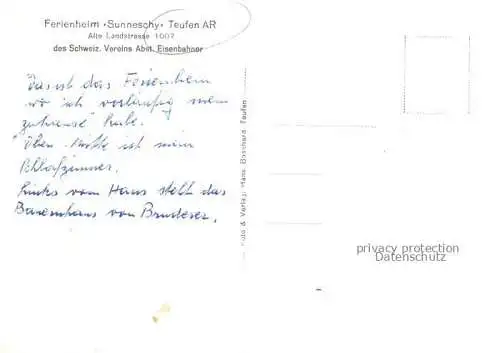 Ferienheim «Sunneschy» Teufen AR
Alte Landstrasse 1007
des Schweiz. Vereins Abst. Eisenbahner
Das ist das Ferienheim
wo ich vorläufig mein
"zuhause" habe.
Oben Mitte ist mein
Schlafzimmer.
Links vom Haus steht das
Bauernhaus von Bruderer.
Foto & Verlag: Hans Eisenhard, Teufen
privacy protection
Datenschutz